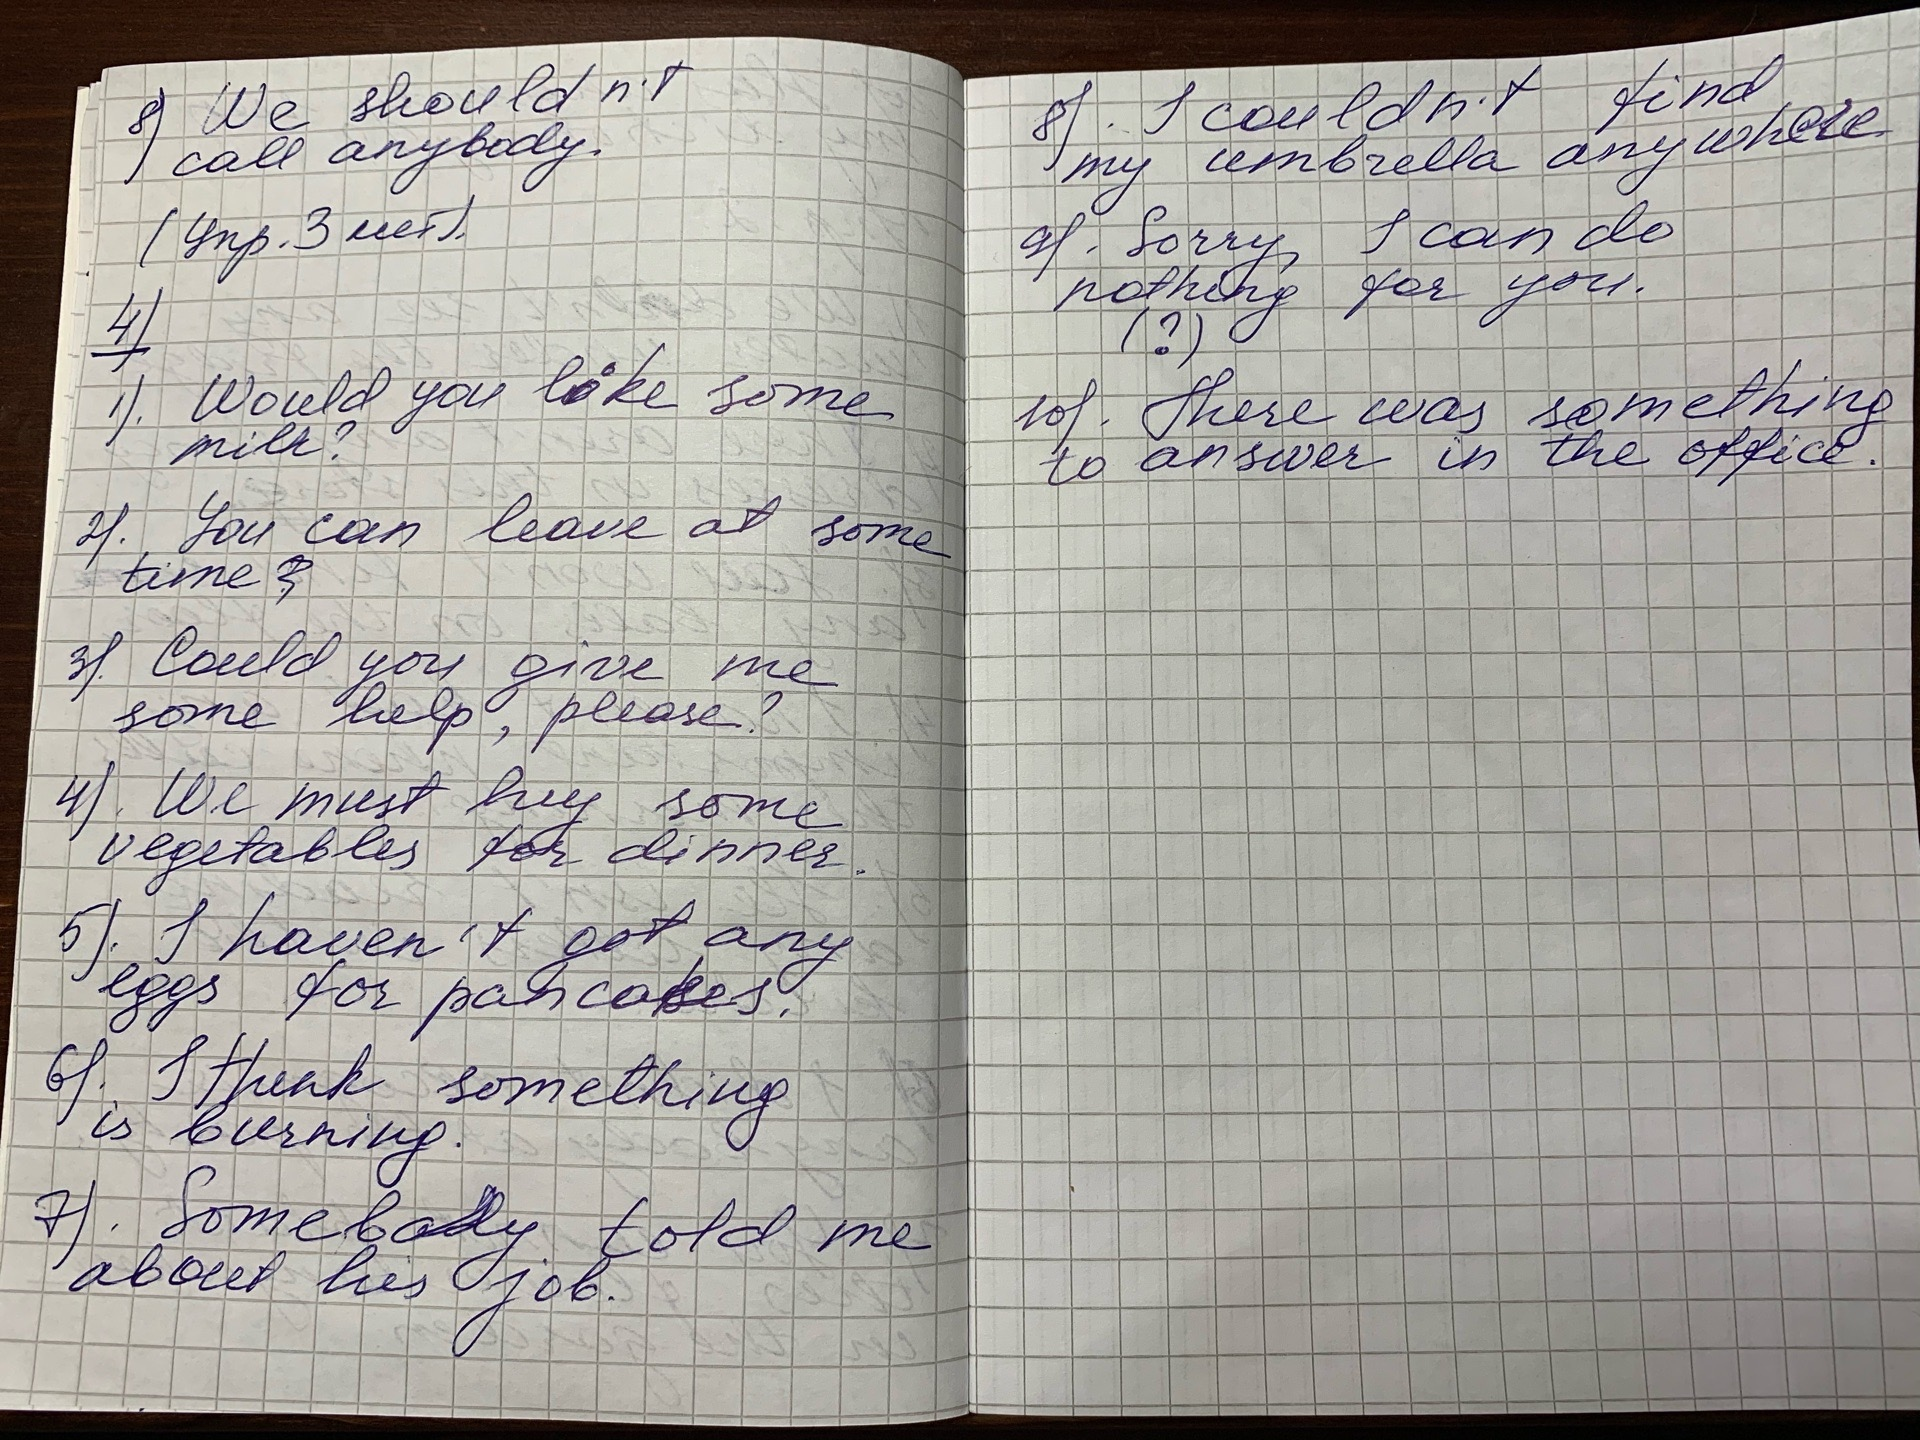 8) We shouldn't
call anybody.
(Упр. 3 нет).
4)
1). Would you like some
milk?
2). You can leave at some
time?
3). Could you give me
some help, please?
4). We must buy some
vegetables for dinner.
5). I haven't got any
eggs for pancakes.
6). I think something
is burning.
7). Somebody told me
about his job.
8). I couldn't find
my umbrella anywhere
9). Sorry, I can do
nothing for you.
(?)
10). There was something
to answer in the office.